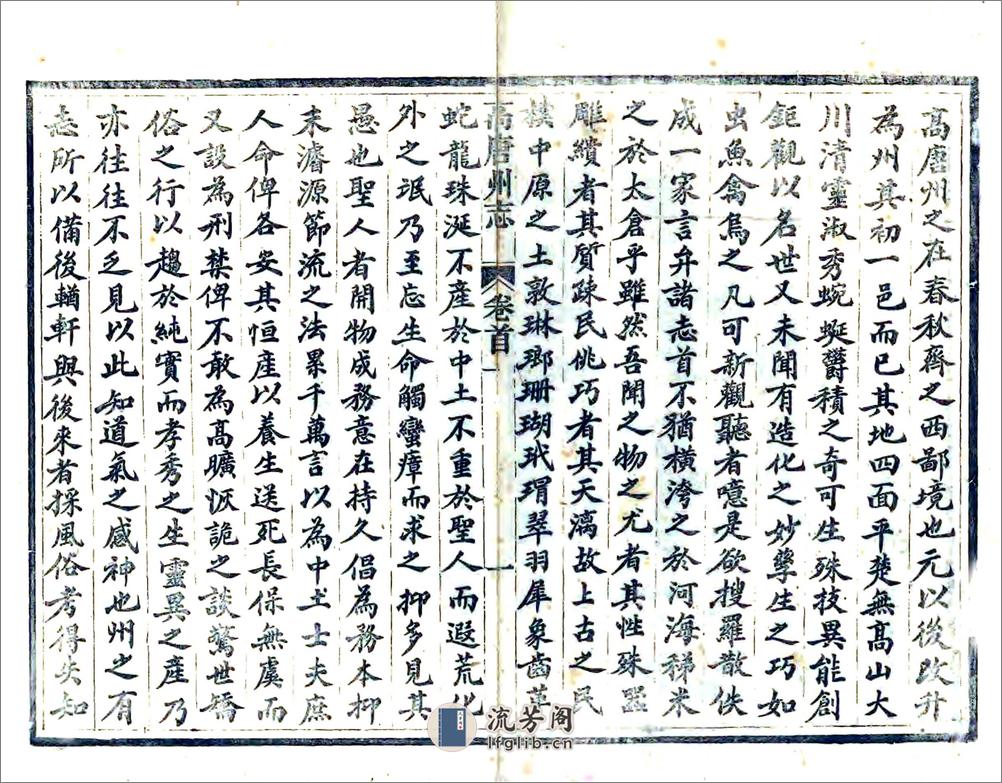 高唐州之在春秋齊之西鄙境也元以後改升
為州其初一邑而已其地四面平楚無高山大
川清靈淑秀蜿蜒欝積之奇可生殊技異能創
鉅觀以名世又未聞有造化之妙孳生之巧如
虫魚禽鳥之凡可新觀聽者噫是欲搜羅散佚
成一家言弁諸志首不猶橫洿之於河海稊米
之於太倉乎雖然吾聞之物之尤者其性殊器
雕繢者其質疎民佻巧者其天漓故上古之民
樸中原之土敦琳瑯珊瑚玳瑁翠羽犀象齒革
高唐州志 卷首 一
蛇龍珠涎不產於中土不重於聖人而遐荒化
外之氓乃至忘生命觸蠻瘴而求之抑多見其
愚也聖人者開物成務意在持久倡為務本抑
末濬源節流之法累千萬言以為中土士夫庶
人命俾各安其恒產以養生送死長保無虞而
又設為刑禁俾不敢為高曠恢詭之談驚世矯
俗之行以趨於純實而孝秀之生靈異之產乃
亦往往不乏見以此知道氣之感神也州之有
志所以備後輶軒與後來者採風俗考得失知
流芳阁
lfglib.cn